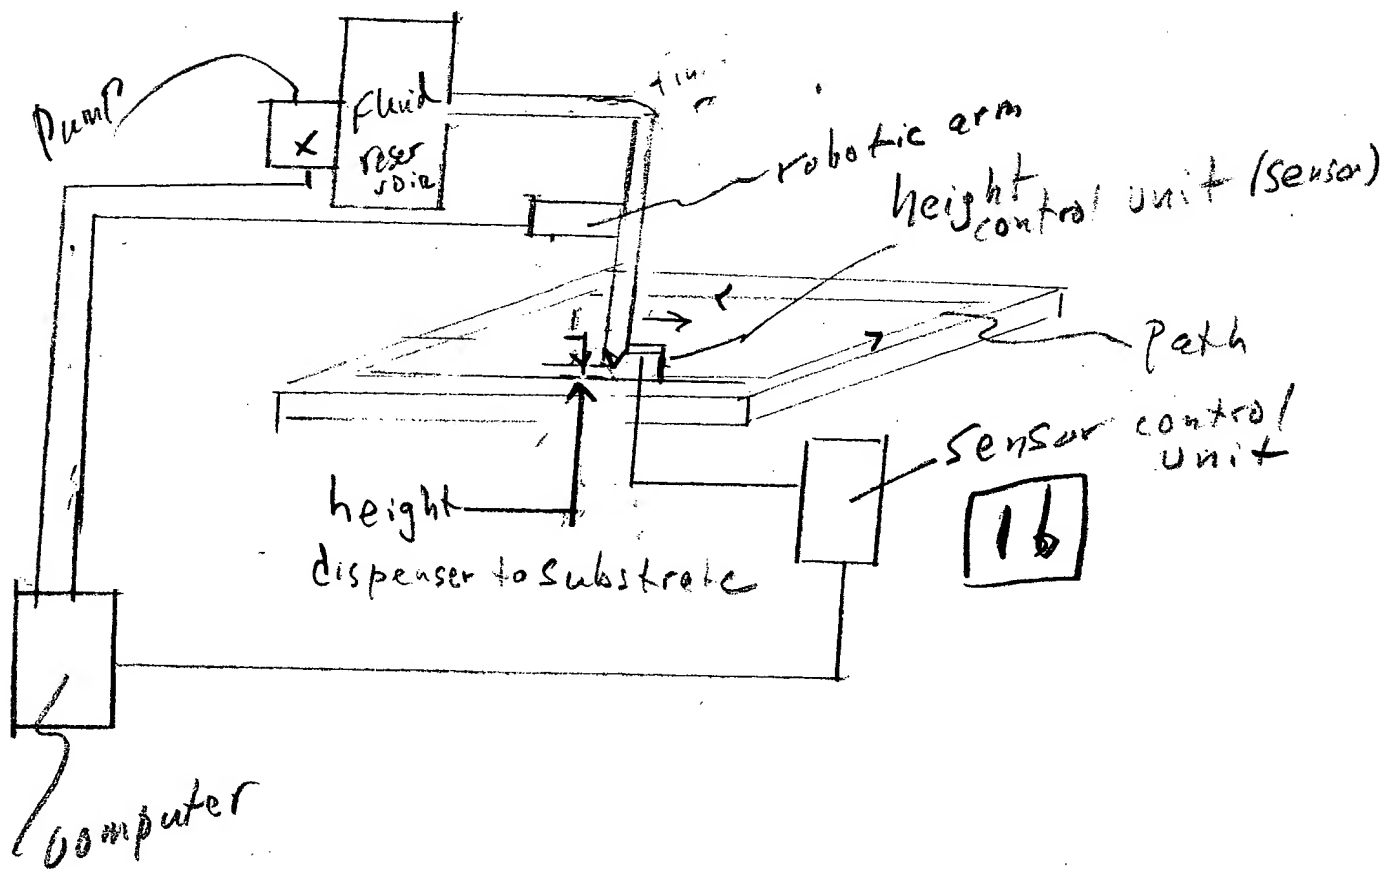 Pump
x
Fluid
reser
voir
robotic arm
height
control unit (sensor)
path
sensor control
unit
height
dispenser to substrate
16
computer